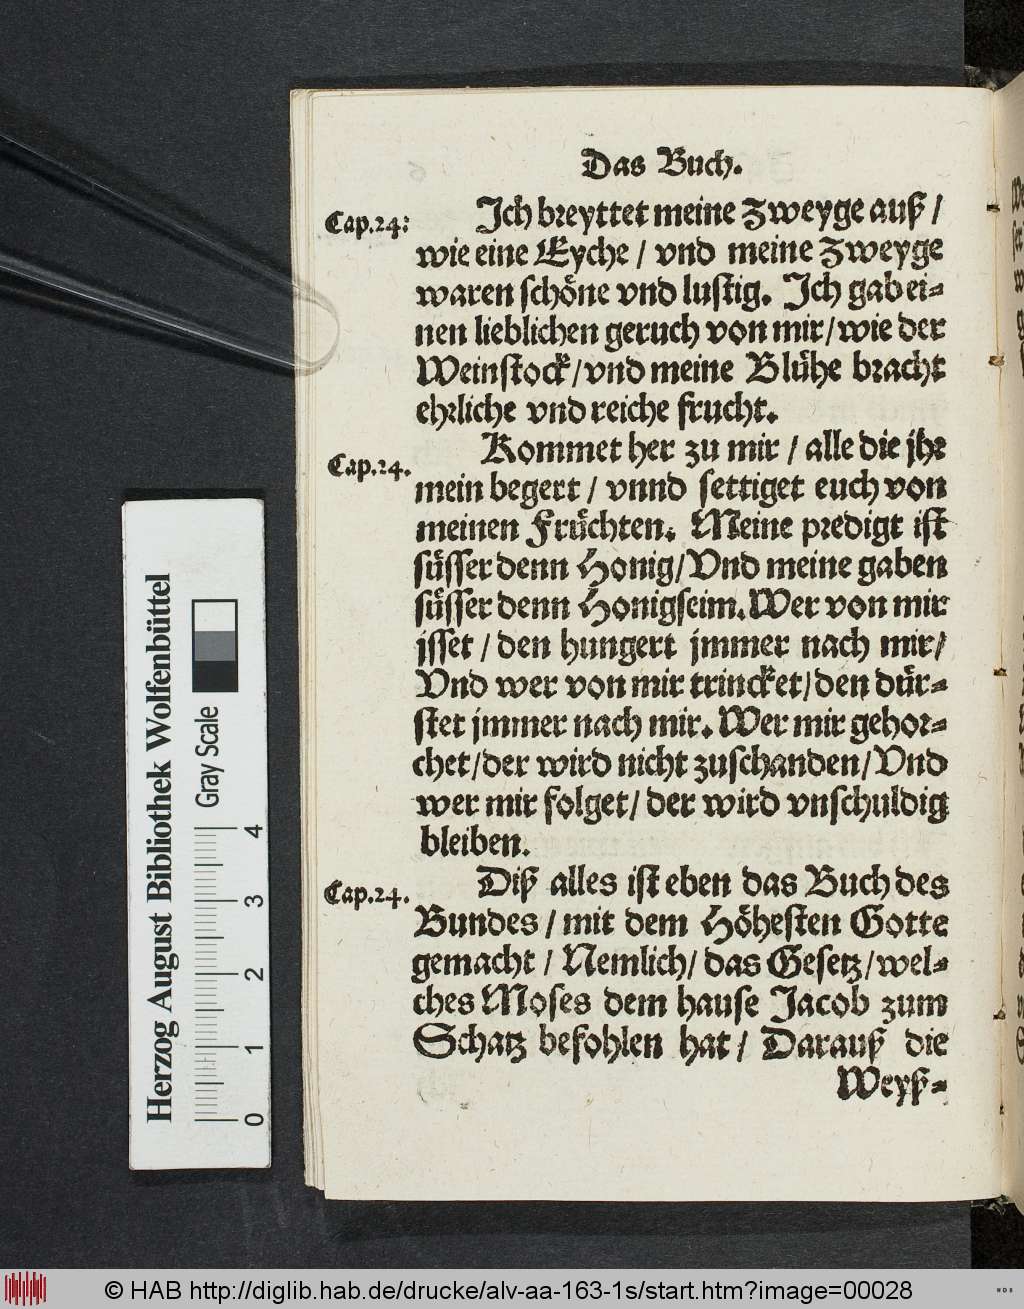 Das Buch.
Cap.24: Ich breyttet meine Zweyge auß /
wie eine Eyche / vnd meine Zweyge
waren schöne vnd lustig. Ich gab ei=
nen lieblichen geruch von mir/wie der
Weinstock/vnd meine Blühe bracht
ehrliche vnd reiche frucht.
Cap.24. Kommet her zu mir / alle die jhr
mein begert / vnnd settiget euch von
meinen Früchten. Meine predigt ist
süsser denn Honig/Vnd meine gaben
süsser denn Honigseim. Wer von mir
jsset / den hungert jmmer nach mir/
Vnd wer von mir trincket/den dür=
stet jmmer nach mir. Wer mir gehor=
chet/der wird nicht zuschanden/Vnd
wer mir folget/ der wird vnschuldig
bleiben.
Cap.24. Diß alles ist eben das Buch des
Bundes / mit dem Höhesten Gotte
gemacht / Nemlich/ das Gesetz/wel=
ches Moses dem hause Jacob zum
Schatz befohlen hat/ Darauß die
Weyß=
Herzog August Bibliothek Wolfenbüttel
Gray Scale
0 1 2 3 4
© HAB http://diglib.hab.de/drucke/alv-aa-163-1s/start.htm?image=00028